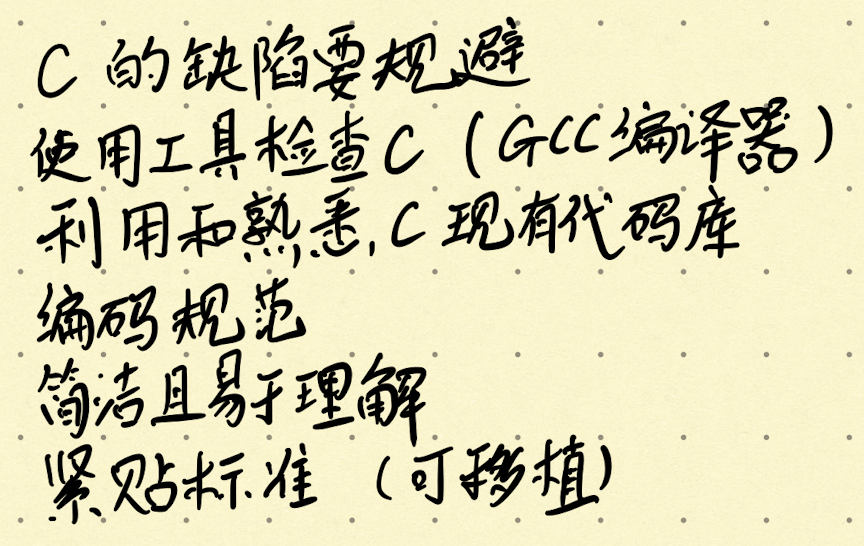 C 的缺陷要规避
使用工具检查C（GCC编译器）
利用和熟悉C现有代码库
编码规范
简洁且易于理解
紧贴标准（可移植）